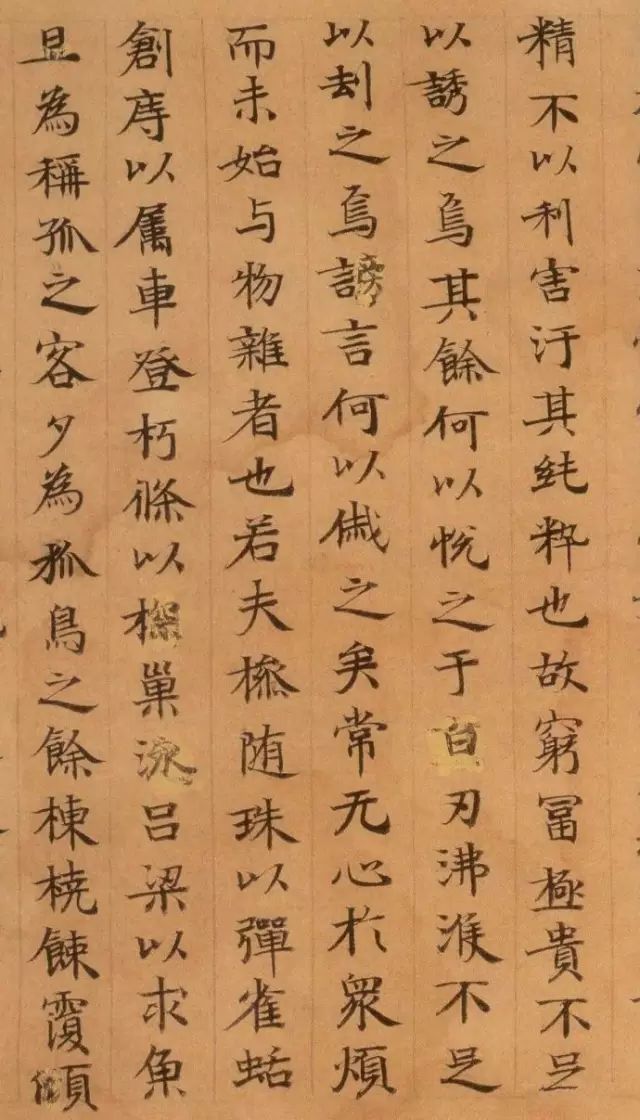 精不以利害汙其純粹也故窮冨極貴不足
以誘之焉其餘何以悅之于白刃沸濩不足
以刦之焉謗言何以慽之矣常无心於衆煩
而未始与物雜者也若夫㮇随珠以彈雀蛞
創痔以属車登朽條以探巢泳吕梁以求魚
旦為稱孤之客夕為狐鳥之餘棟橈餗覆傾